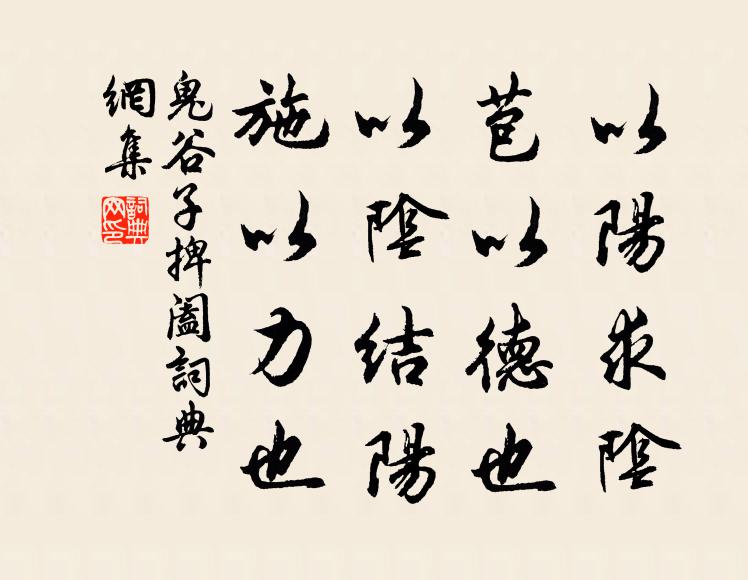 以陽求陰
苞以德也
以陰結陽
施以力也
鬼谷子捭闔詞典
網集
詞典
網印